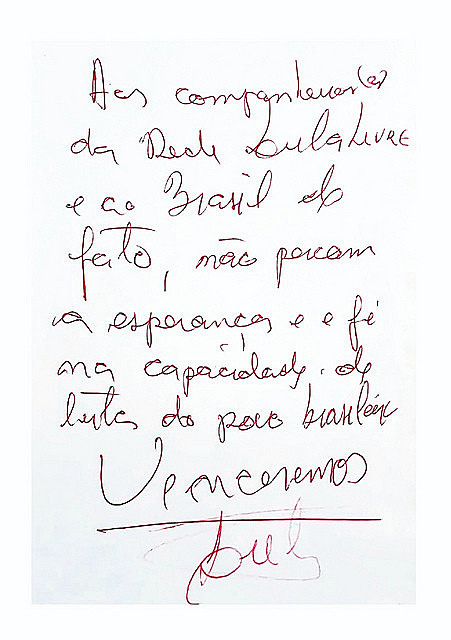 Aos companheiros(as)
da Rede Lula Livre
e ao Brasil de
fato, não percam
a esperança e e fé
na capacidade de
luta do povo brasileiro
Venceremos
Lula